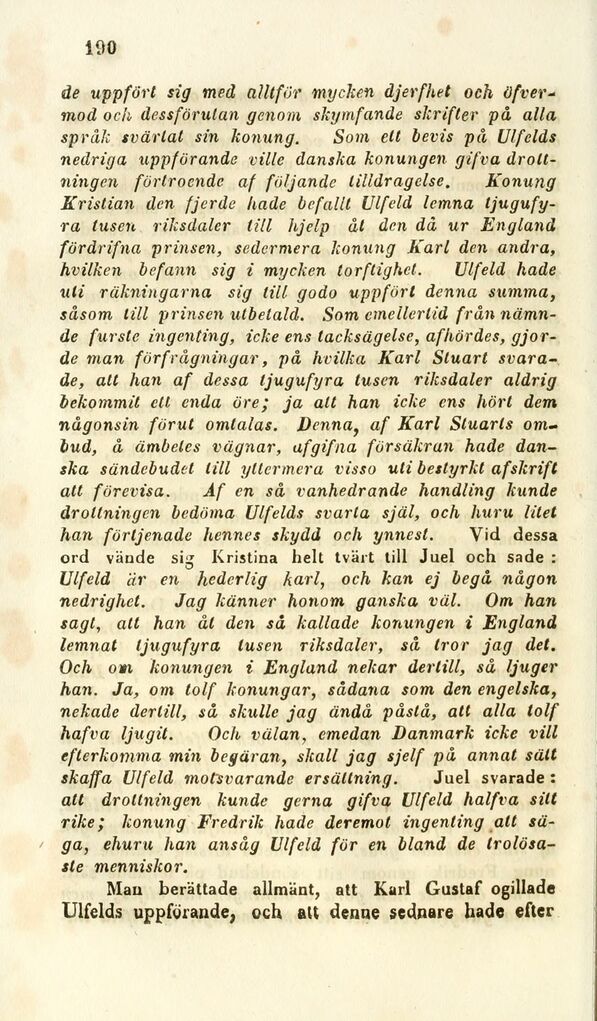 190
de uppfört sig med alltför mycken djerfhet och öfver-
mod och dessförutan genom skymfande skrifter på alla
språk svärtat sin konung. Som ett bevis på Ulfelds
nedriga uppförande ville danska konungen gifva drott-
ningen förtroende af följande tilldragelse. Konung
Kristian den fjerde hade befallt Ulfeld lemna tjugufy-
ra tusen riksdaler till hjelp åt den då ur England
fördrifna prinsen, sedermera konung Karl den andra,
hvilken befann sig i mycken torftighet. Ulfeld hade
uti räkningarna sig till godo uppfört denna summa,
såsom till prinsen utbetald. Som emellertid från nämn-
de furste ingenting, icke ens tacksägelse, afhördes, gjor-
de man förfrågningar, på hvilka Karl Stuart svara-
de, att han af dessa tjugufyra tusen riksdaler aldrig
bekommit ett enda öre; ja att han icke ens hört dem
någonsin förut omtalas. Denna, af Karl Stuarts om-
bud, å ämbetes vägnar, afgifna försäkran hade dan-
ska sändebudet till yttermera visso uti bestyrkt afskrift
att förevisa. Af en så vanhedrande handling kunde
drottningen bedöma Ulfelds svarta själ, och huru litet
han förtjenade hennes skydd och ynnest. Vid dessa
ord vände sig Kristina helt tvärt till Juel och sade :
Ulfeld är en hederlig karl, och kan ej begå någon
nedrighet. Jag känner honom ganska väl. Om han
sagt, att han åt den så kallade konungen i England
lemnat tjugufyra tusen riksdaler, så tror jag det.
Och om konungen i England nekar dertill, så ljuger
han. Ja, om tolf konungar, sådana som den engelska,
nekade dertill, så skulle jag ändå påstå, att alla tolf
hafva ljugit. Och välan, emedan Danmark icke vill
efterkomma min begäran, skall jag sjelf på annat sätt
skaffa Ulfeld motsvarande ersättning. Juel svarade :
att drottningen kunde gerna gifva Ulfeld halfva sitt
rike; konung Fredrik hade deremot ingenting att sä-
ga, ehuru han ansåg Ulfeld för en bland de trolösa-
ste menniskor.
Man berättade allmänt, att Karl Gustaf ogillade
Ulfelds uppförande, och att denne sednare hade efter